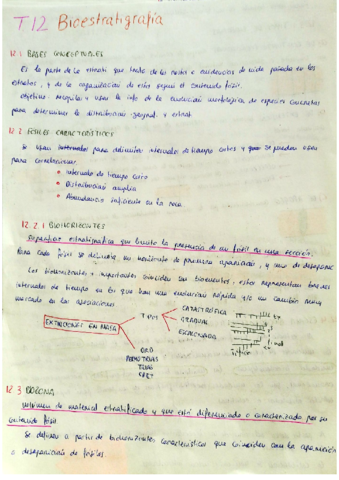 T12 Bioestratigrafía
12.1 BASES CONCEPTUALES
Es la parte de la estrati que trata de los restos o evidencias de vida pasada en los
estratos, y de la organización de estos según el contenido fósil.
Objetivo: recopilar y usar la info de la evolución morfológica de especies
para determinar la distribución geográf. y estrat
12.2 FÓSILES CARACTERÍSTICOS
Se usan para delimitar intervalos de tiempo cortos y que se puedan usar
para correlacionar
• Intervalo de tiempo corto
• Distribución amplia
• Abundancia suficiente en la roca
12.2.1 BIOHORIZONTES
Superficie estratigráfica que limita la presencia de un fósil en una sección.
Para cada fósil se delimita un horizonte de primera aparición, y uno de desaparic
Los biohorizontes + importantes coinciden con bioeventos, estos representan breves
intervalos de tiempo en los que hay una evolución rápida y/o un cambio muy
marcado en las asociaciones
EXTINCIONES EN MASA
TIPOS
CATASTRÓFICA
GRADUAL
ESCALONADA
ORD
PERMOTRIAS
TRIAS
12.3 BIOZONA
Volumen de material estratificado y que está diferenciado o caracterizado por su
contenido fósil
Se definen a partir de biohorizontes característicos que coinciden con la aparición
o desaparición de fósiles